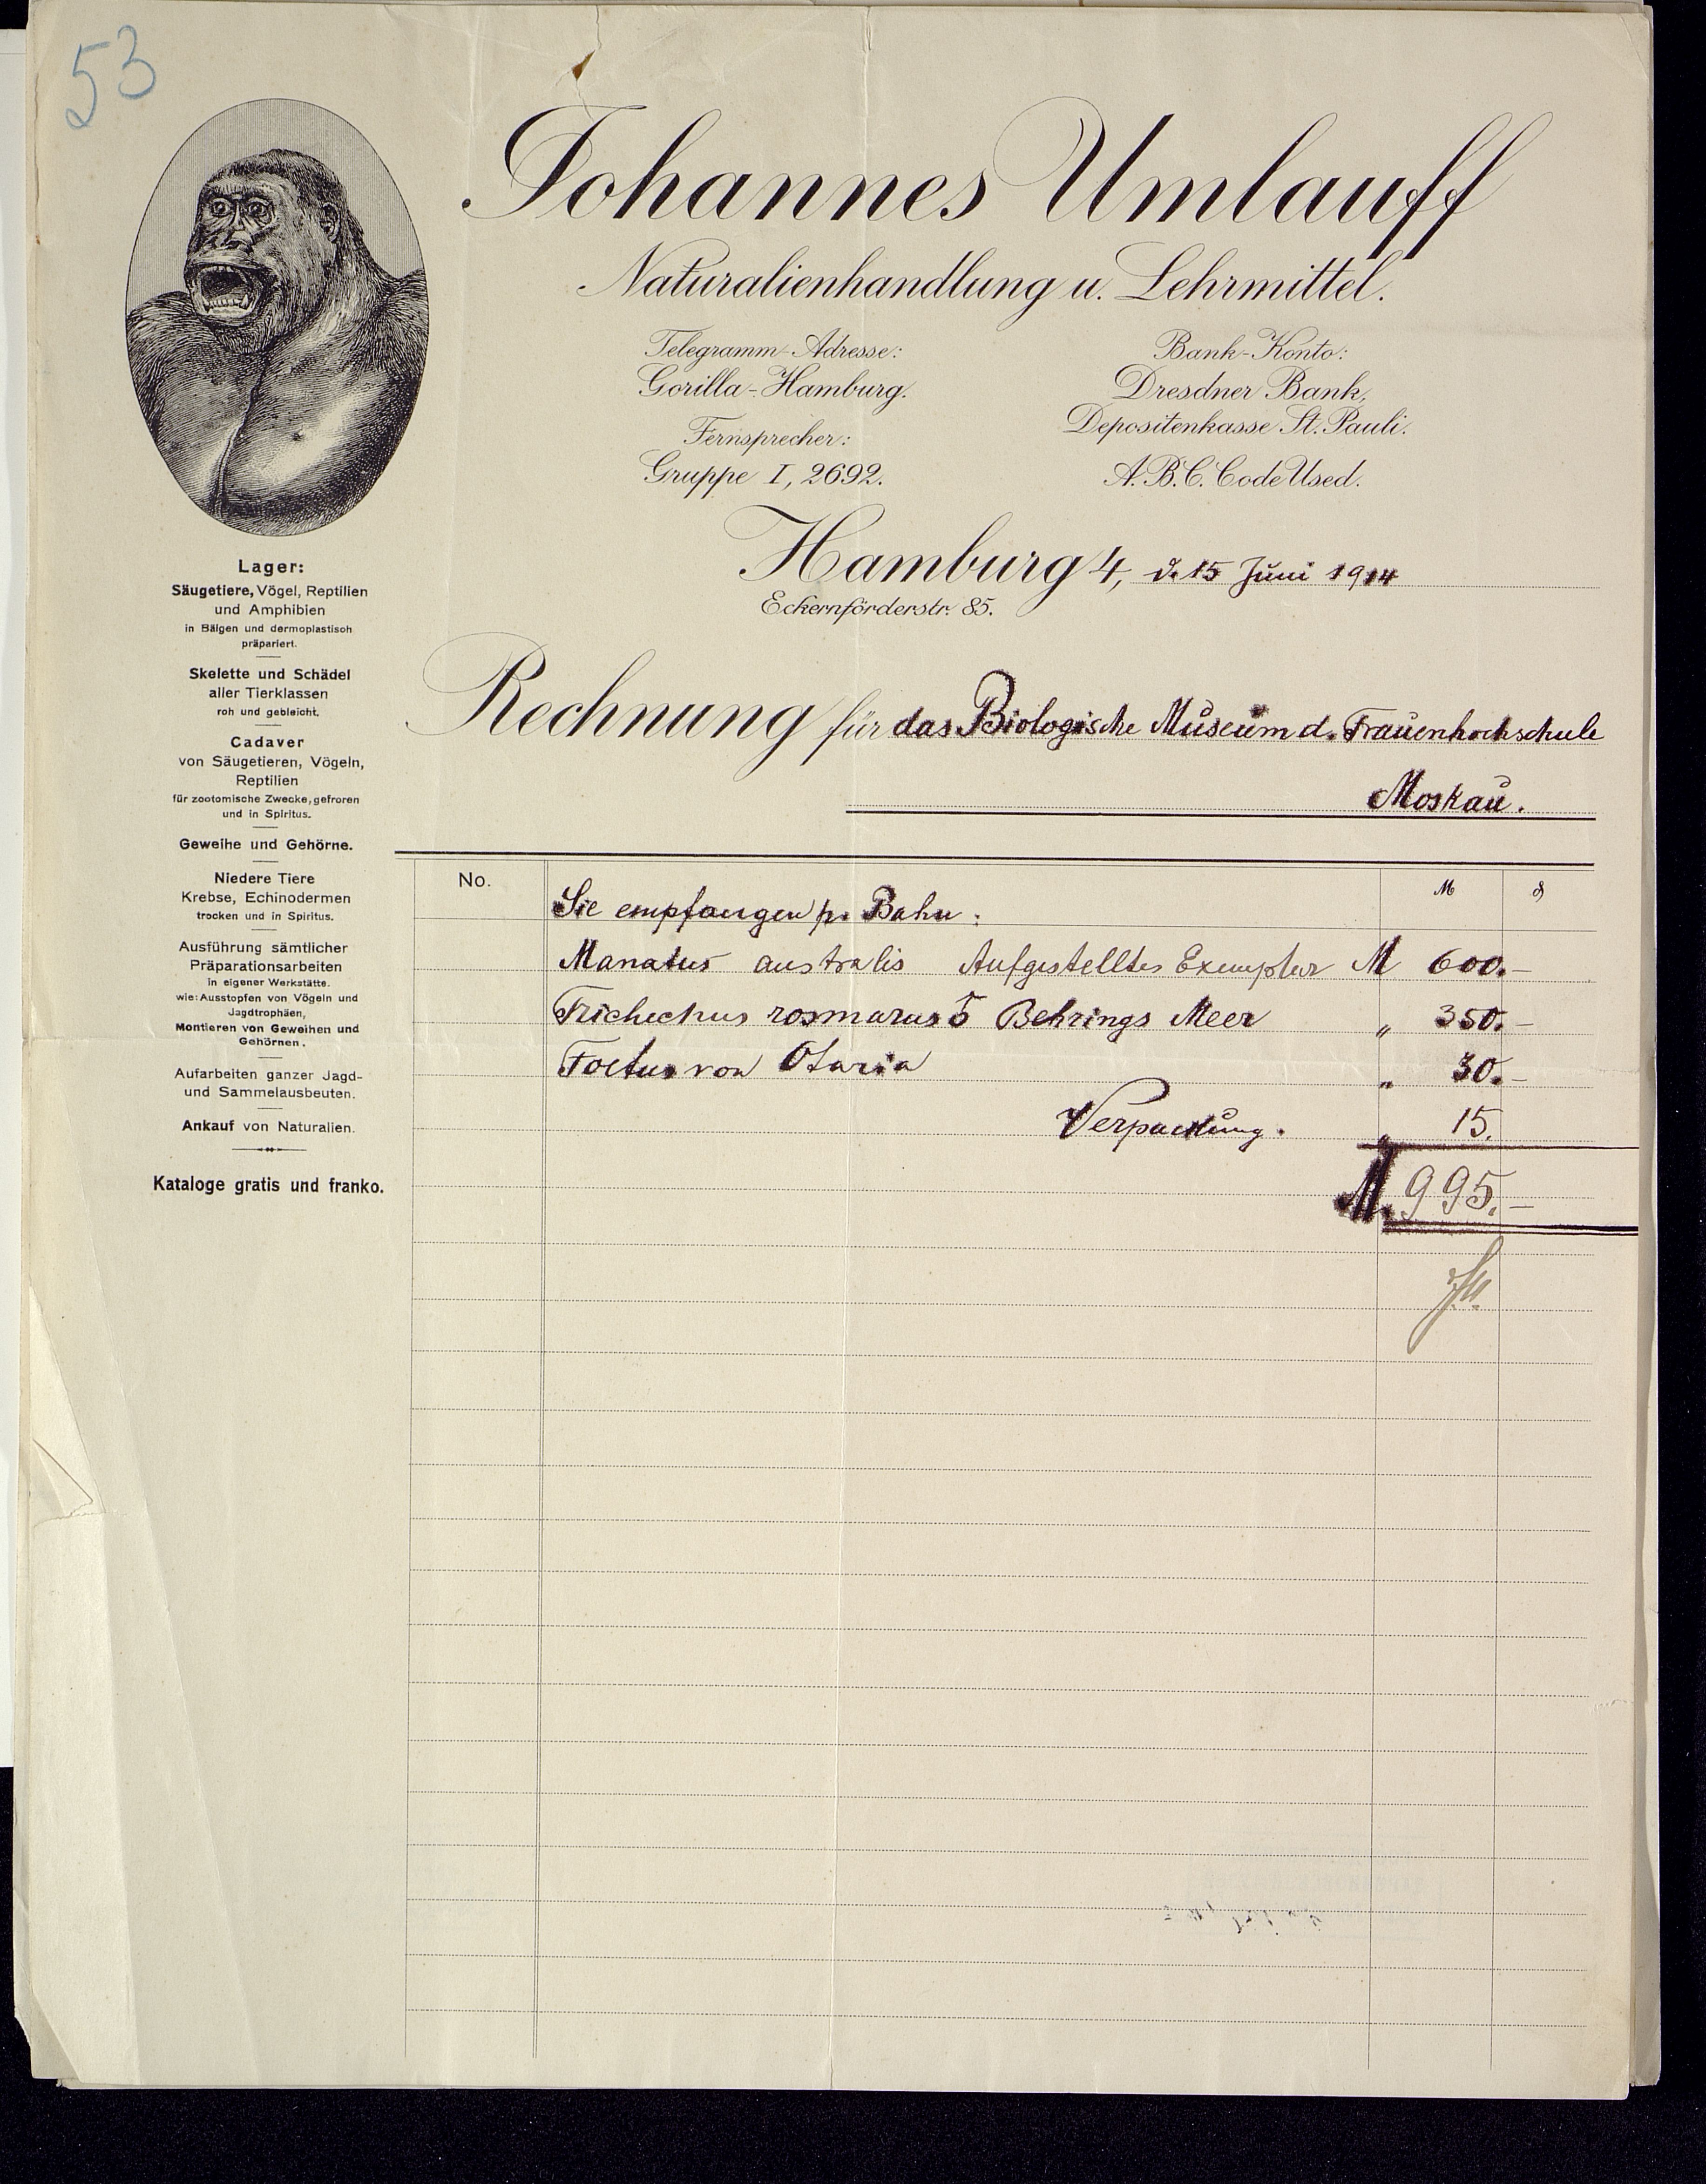 53
Johannes Umlauff
Naturalienhandlung u. Lehrmittel.
Telegramm-Adresse:
Gorilla-Hamburg.
Fernsprecher:
Gruppe I, 2692.
Bank-Konto:
Dresdner Bank,
Depositenkasse St. Pauli.
A.B.C. Code Used.
Hamburg 4, d. 15 Juni 1914
Eckernförderstr. 85.
Rechnung für das Biologische Museum d. Frauenhochschule
Moskau.
Lager:
Säugetiere, Vögel, Reptilien
und Amphibien
in Bälgen und dermoplastisch
präpariert.
Skelette und Schädel
aller Tierklassen
roh und gebleicht.
Cadaver
von Säugetieren, Vögeln,
Reptilien
für zootomische Zwecke, gefroren
und in Spiritus.
Geweihe und Gehörne.
Niedere Tiere
Krebse, Echinodermen
trocken und in Spiritus.
Ausführung sämtlicher
Präparationsarbeiten
in eigener Werkstätte.
wie: Ausstopfen von Vögeln und
Jagdtrophäen,
Montieren von Geweihen und
Gehörnen.
Aufarbeiten ganzer Jagd-
und Sammelausbeuten.
Ankauf von Naturalien.
Kataloge gratis und franko.
No. M ₰
Sie empfangen p. Bahn:
Manatus australis Aufgestelltes Exemplar M 600.-
Trichechus rosmarus Behrings Meer " 350.-
Foetus von Otaria " 30.-
Verpackung. " 15.
M. 995.-